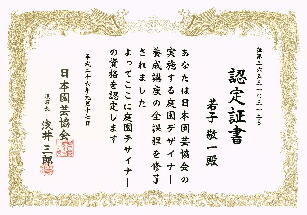 認定証書
若子 敬一殿
あなたは日本園芸協会の
実施する庭園デザイナー
養成講座の全課程を修了
されました
よってここに庭園デザイナー
の資格を認定します
日本園芸協会
浅井 三郎